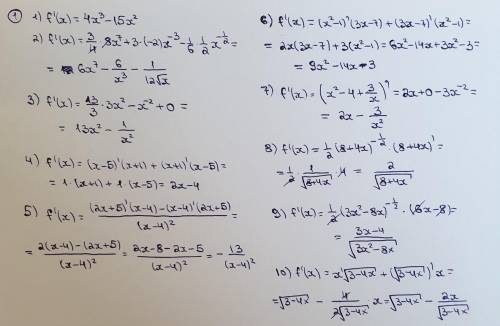 ① 1) f'(x) = 4x³ - 15x²
2) f'(x) = 3/4 · 8x⁷ + 3·(-2)x⁻³ - 1/6 · 1/2 x^(-1/2) =
= 6x⁷ - 6/x³ - 1/(12√x)
3) f'(x) = 13/3 · 3x² - x⁻² + 0 =
= 13x² - 1/x²
4) f'(x) = (x-5)'(x+1) + (x+1)'(x-5) =
= 1·(x+1) + 1·(x-5) = 2x-4
5) f'(x) = ((2x+5)'(x-4) - (x-4)'(2x+5))/(x-4)² =
= (2(x-4) - (2x+5))/(x-4)² = (2x-8-2x-5)/(x-4)² = - 13/(x-4)²
6) f'(x) = (x²-1)'(3x-7) + (3x-7)'(x²-1) =
= 2x(3x-7) + 3(x²-1) = 6x² - 14x + 3x² - 3 =
= 9x² - 14x - 3
7) f'(x) = (x² - 4 + 3/x)' = 2x + 0 - 3x⁻² =
= 2x - 3/x²
8) f'(x) = 1/2 (8+4x)^(-1/2) · (8+4x)' =
= 1/2 · 1/√(8+4x) · 4 = 2/√(8+4x)
9) f'(x) = 1/2 (3x²-8x)^(-1/2) · (6x-8) =
= (3x-4)/√(3x²-8x)
10) f'(x) = x'√(3-4x) + (√(3-4x))' x =
= √(3-4x) - 4/(2√(3-4x)) · x = √(3-4x) - 2x/√(3-4x)